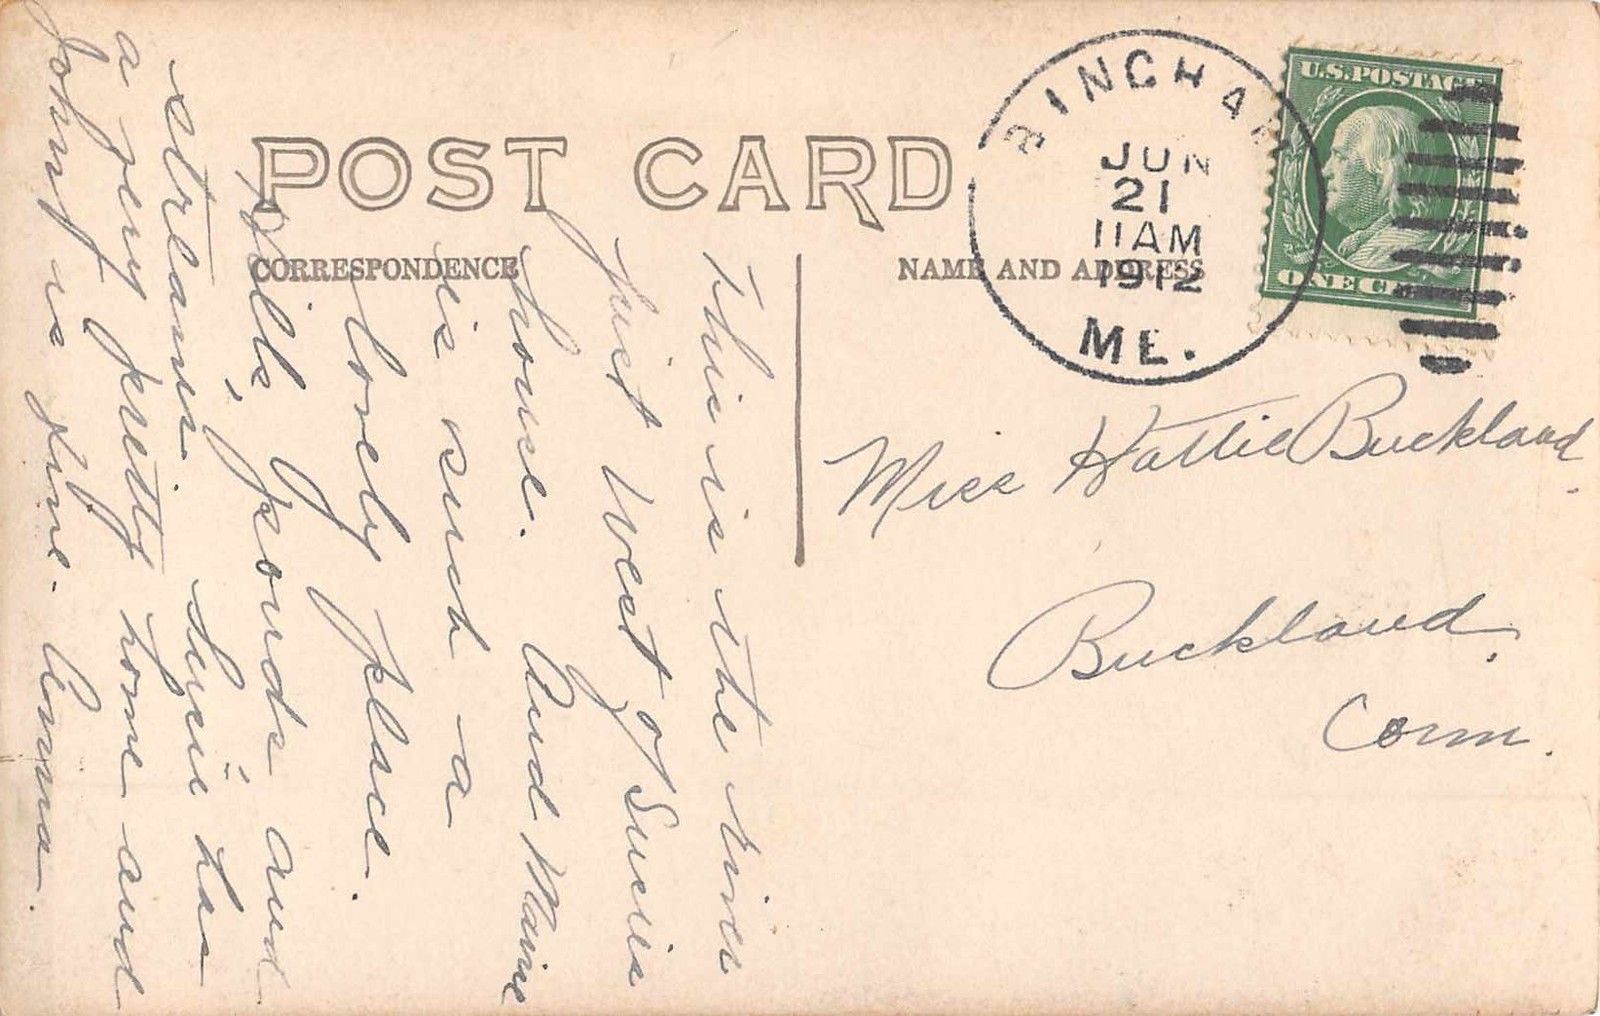 POST CARD
CORRESPONDENCE
NAME AND ADDRESS
BINGHAM
JUN
21
11 AM
1912
ME.
U.S. POSTAGE
ONE CENT
Miss Hattie Buckland.
Buckland,
Conn.
This is the river
just West of Susies
house. And Maine
is such a
lovely place.
Hills, ponds and
streams. Susie has
a very pretty home and
Johny is fine. Anna.